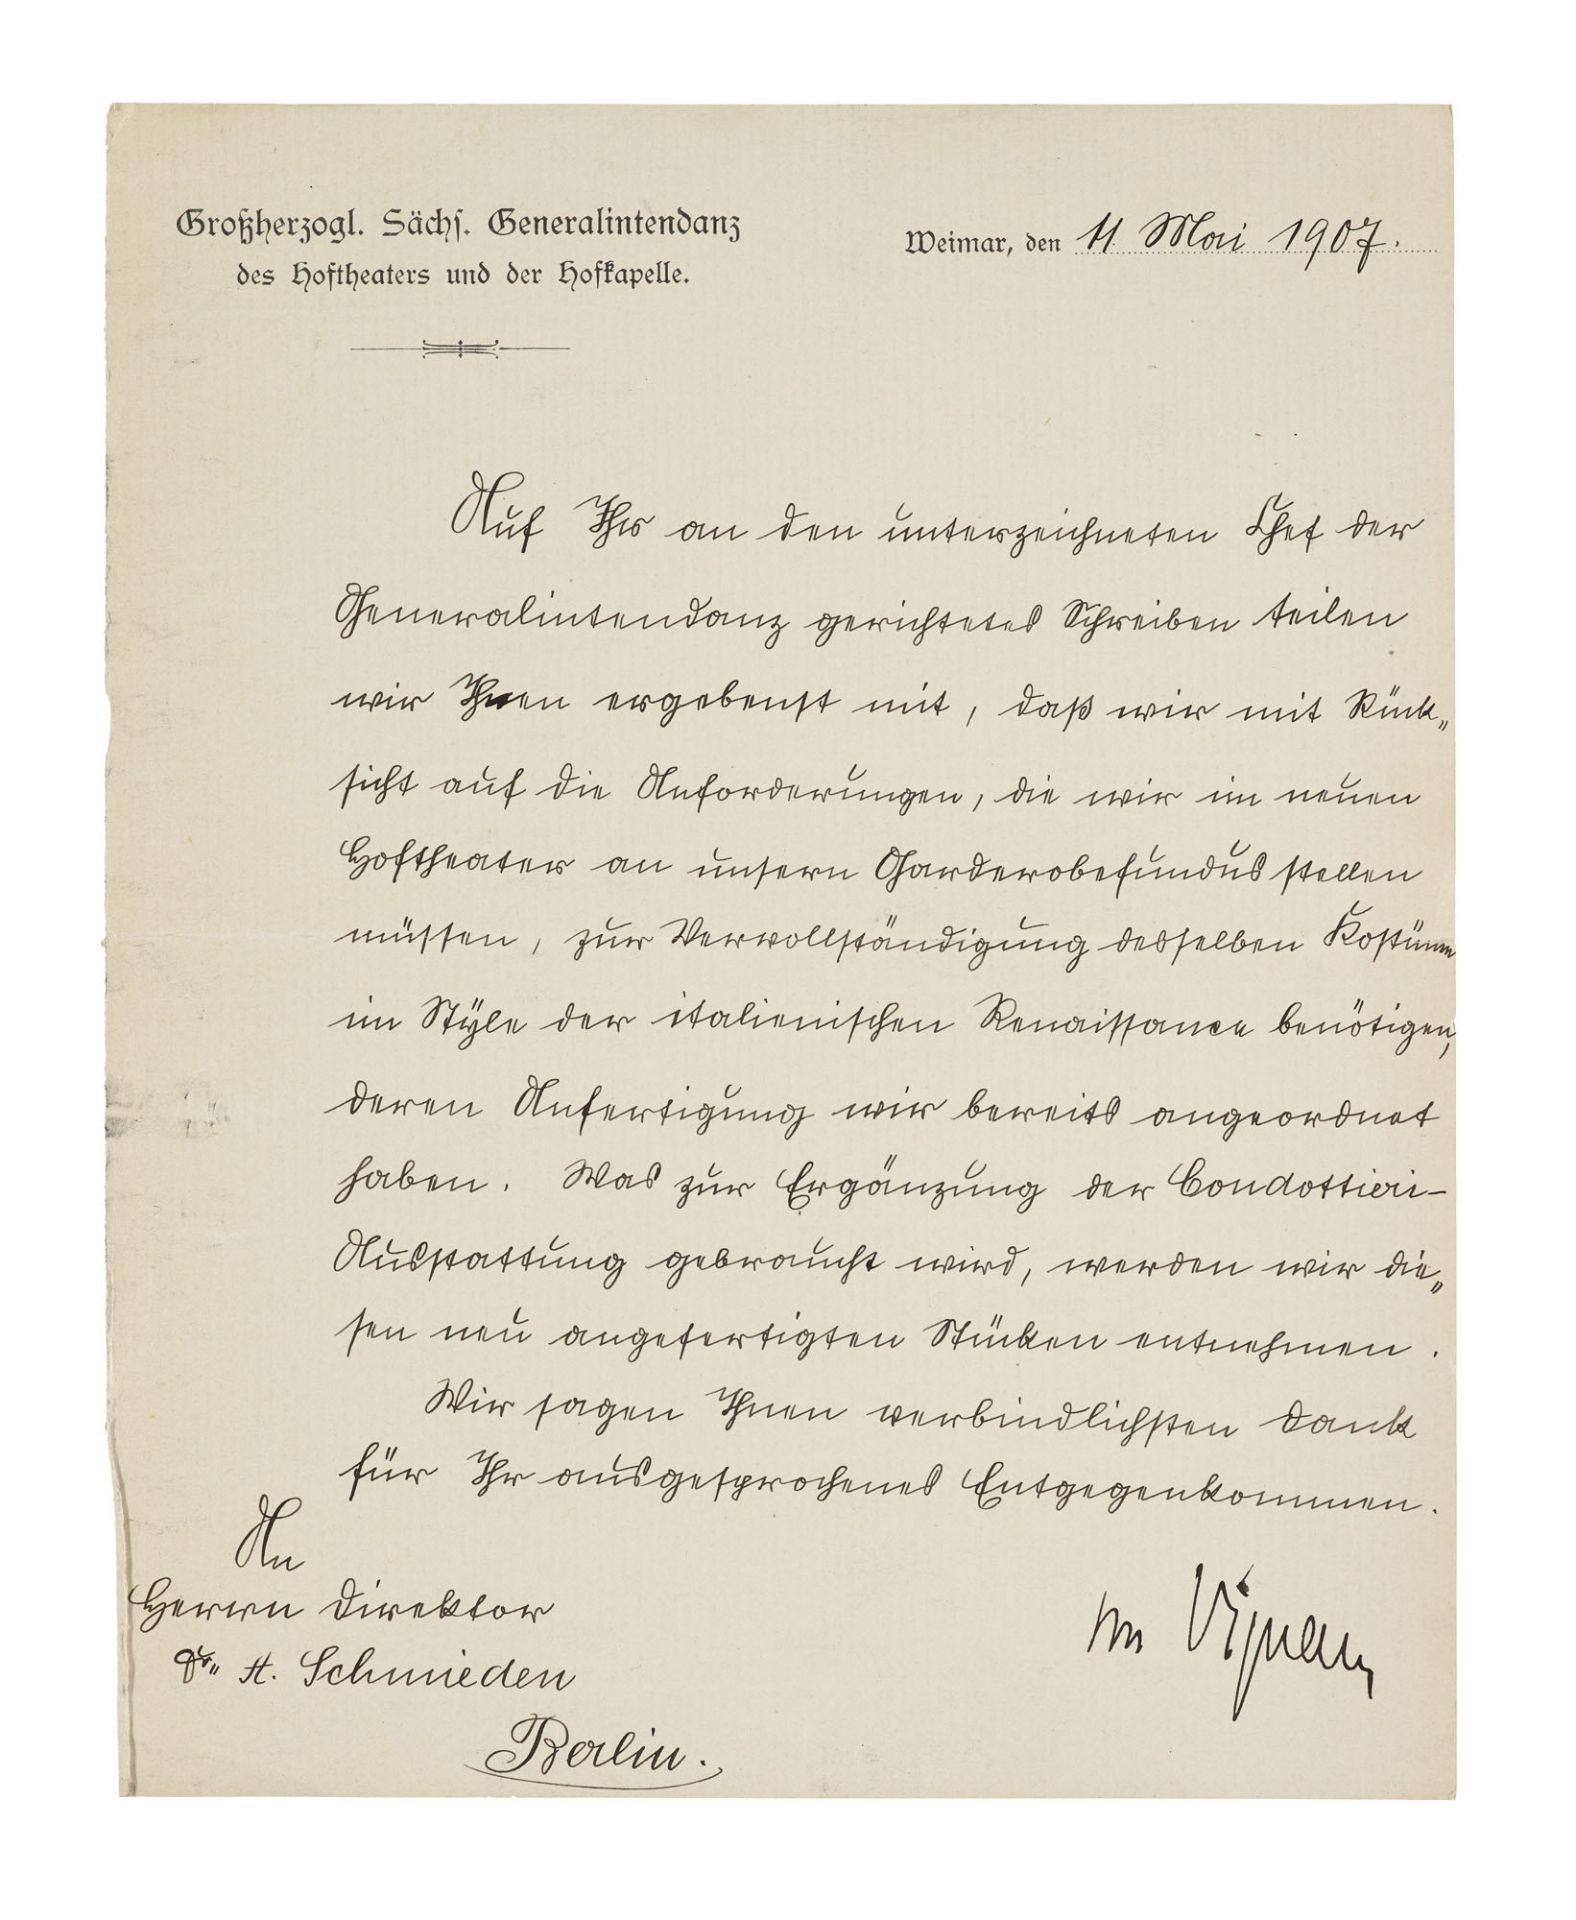 Großherzogl. Sächs. Generalintendanz
des Hoftheaters und der Hofkapelle.
Weimar, den 11. Mai 1907.
Auf Ihr an den unterzeichneten Chef der
Generalintendanz gerichtetes Schreiben teilen
wir Ihnen ergebenst mit, daß wir mit Rück„
sicht auf die Anforderungen, die wir im neuen
Hoftheater an unsern Garderobefundus stellen
müssen, zur Vervollständigung desselben Kostüme
im Style der italienischen Renaissance benötigen,
deren Anfertigung wir bereits angeordnet
haben. Was zur Ergänzung der Condottieri-
Ausstattung gebraucht wird, werden wir die„
sen neu angefertigten Stücken entnehmen.
Wir sagen Ihnen verbindlichsten Dank
für Ihr ausgesprochenes Entgegenkommen.
An
Herrn Direktor
Dr. A. Schmieden
Berlin.
von Vignau